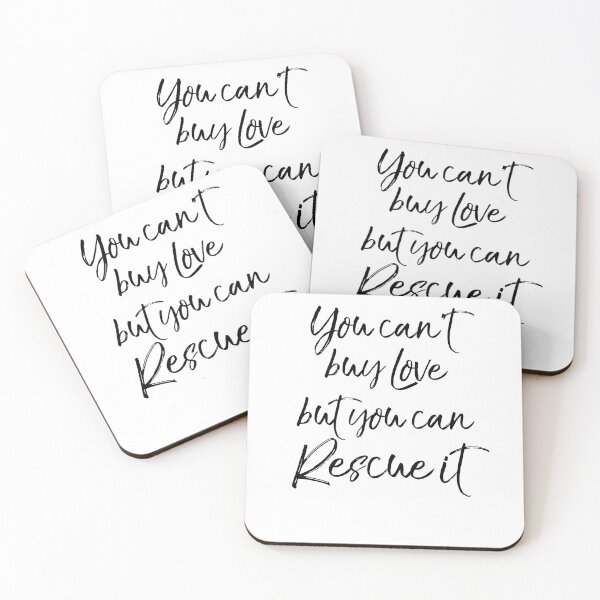 You can't
buy Love
but can
it
You can't
buy Love
but you can
Rescue it
You can't
buy Love
but you can
Rescue
You can't
buy Love
but you can
Rescue it